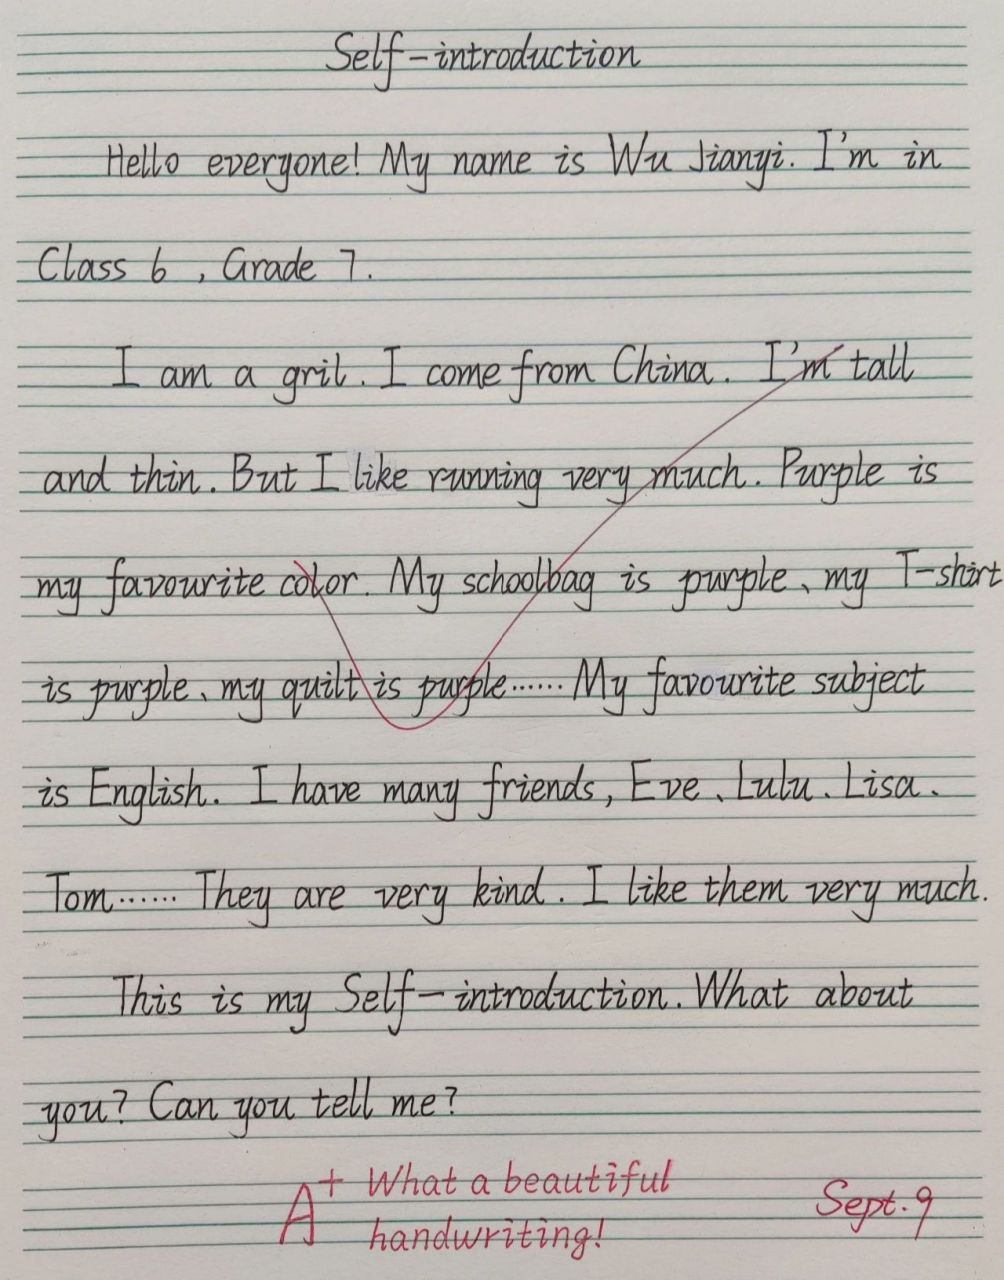 Self-introduction
Hello everyone! My name is Wu Jianyi. I'm in
Class 6 , Grade 7.
I am a gril. I come from China. I'm tall
and thin. But I like running very much. Purple is
my favourite color. My schoolbag is purple、my T-shirt
is purple、my quilt is purple…… My favourite subject
is English. I have many friends, Eve、Lulu、Lisa、
Tom…… They are very kind. I like them very much.
This is my Self-introduction. What about
you? Can you tell me?
A+ What a beautiful
handwriting!
Sept. 9